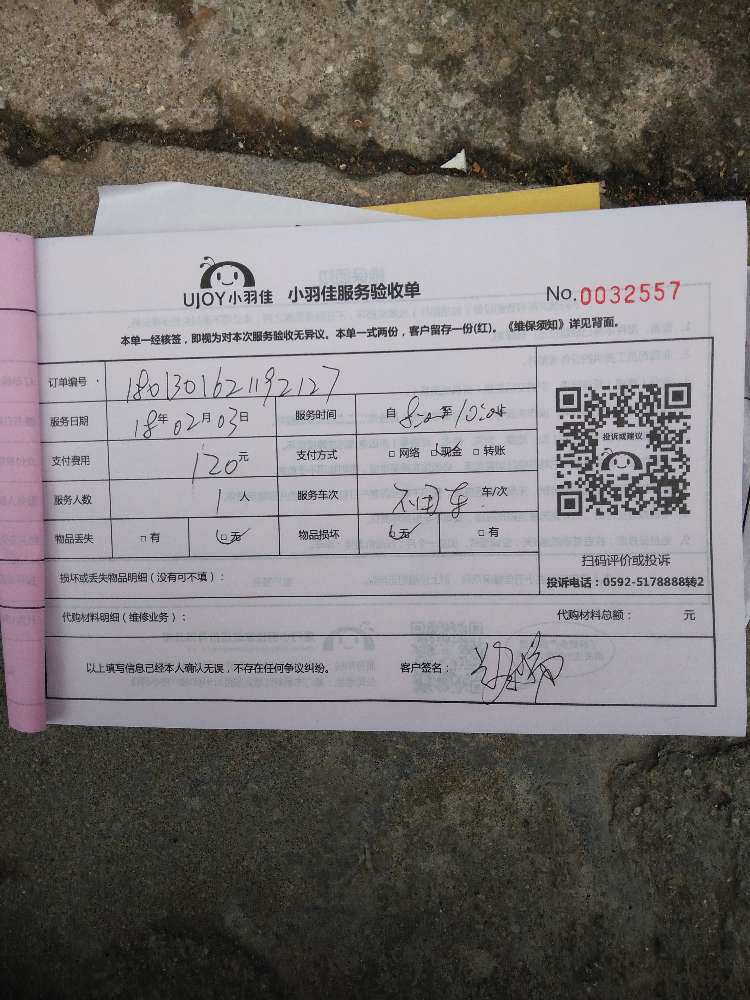 UJOY小羽佳 小羽佳服务验收单 No.0032557
本单一经核签，即视为对本次服务验收无异议。本单一式两份，客户留存一份(红)。《维保须知》详见背面。
订单编号 1801301621192127
服务日期 18年02月03日 服务时间 自8:00至10:00
支付费用 120元 支付方式 □网络 ☑现金 □转账
服务人数 1人 服务车次 车/次
物品丢失 □有 ☑无 物品损坏 ☑无 □有
投诉或建议
扫码评价或投诉
投诉电话：0592-5178888转2
损坏或丢失物品明细（没有可不填）：
代购材料明细（维修业务）： 代购材料总额： 元
以上填写信息已经本人确认无误，不存在任何争议纠纷。 客户签名：